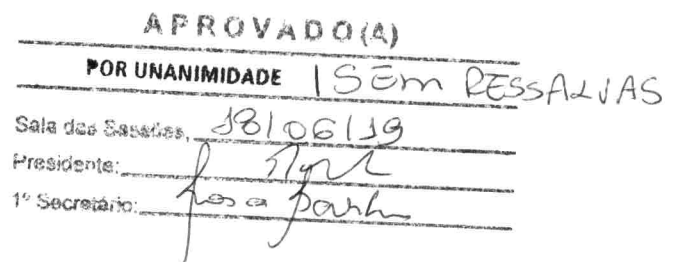 APROVADO(A)
POR UNANIMIDADE | SEM RESSALVAS
Sala das Sessões, 18/06/19
Presidente:
1º Secretário: